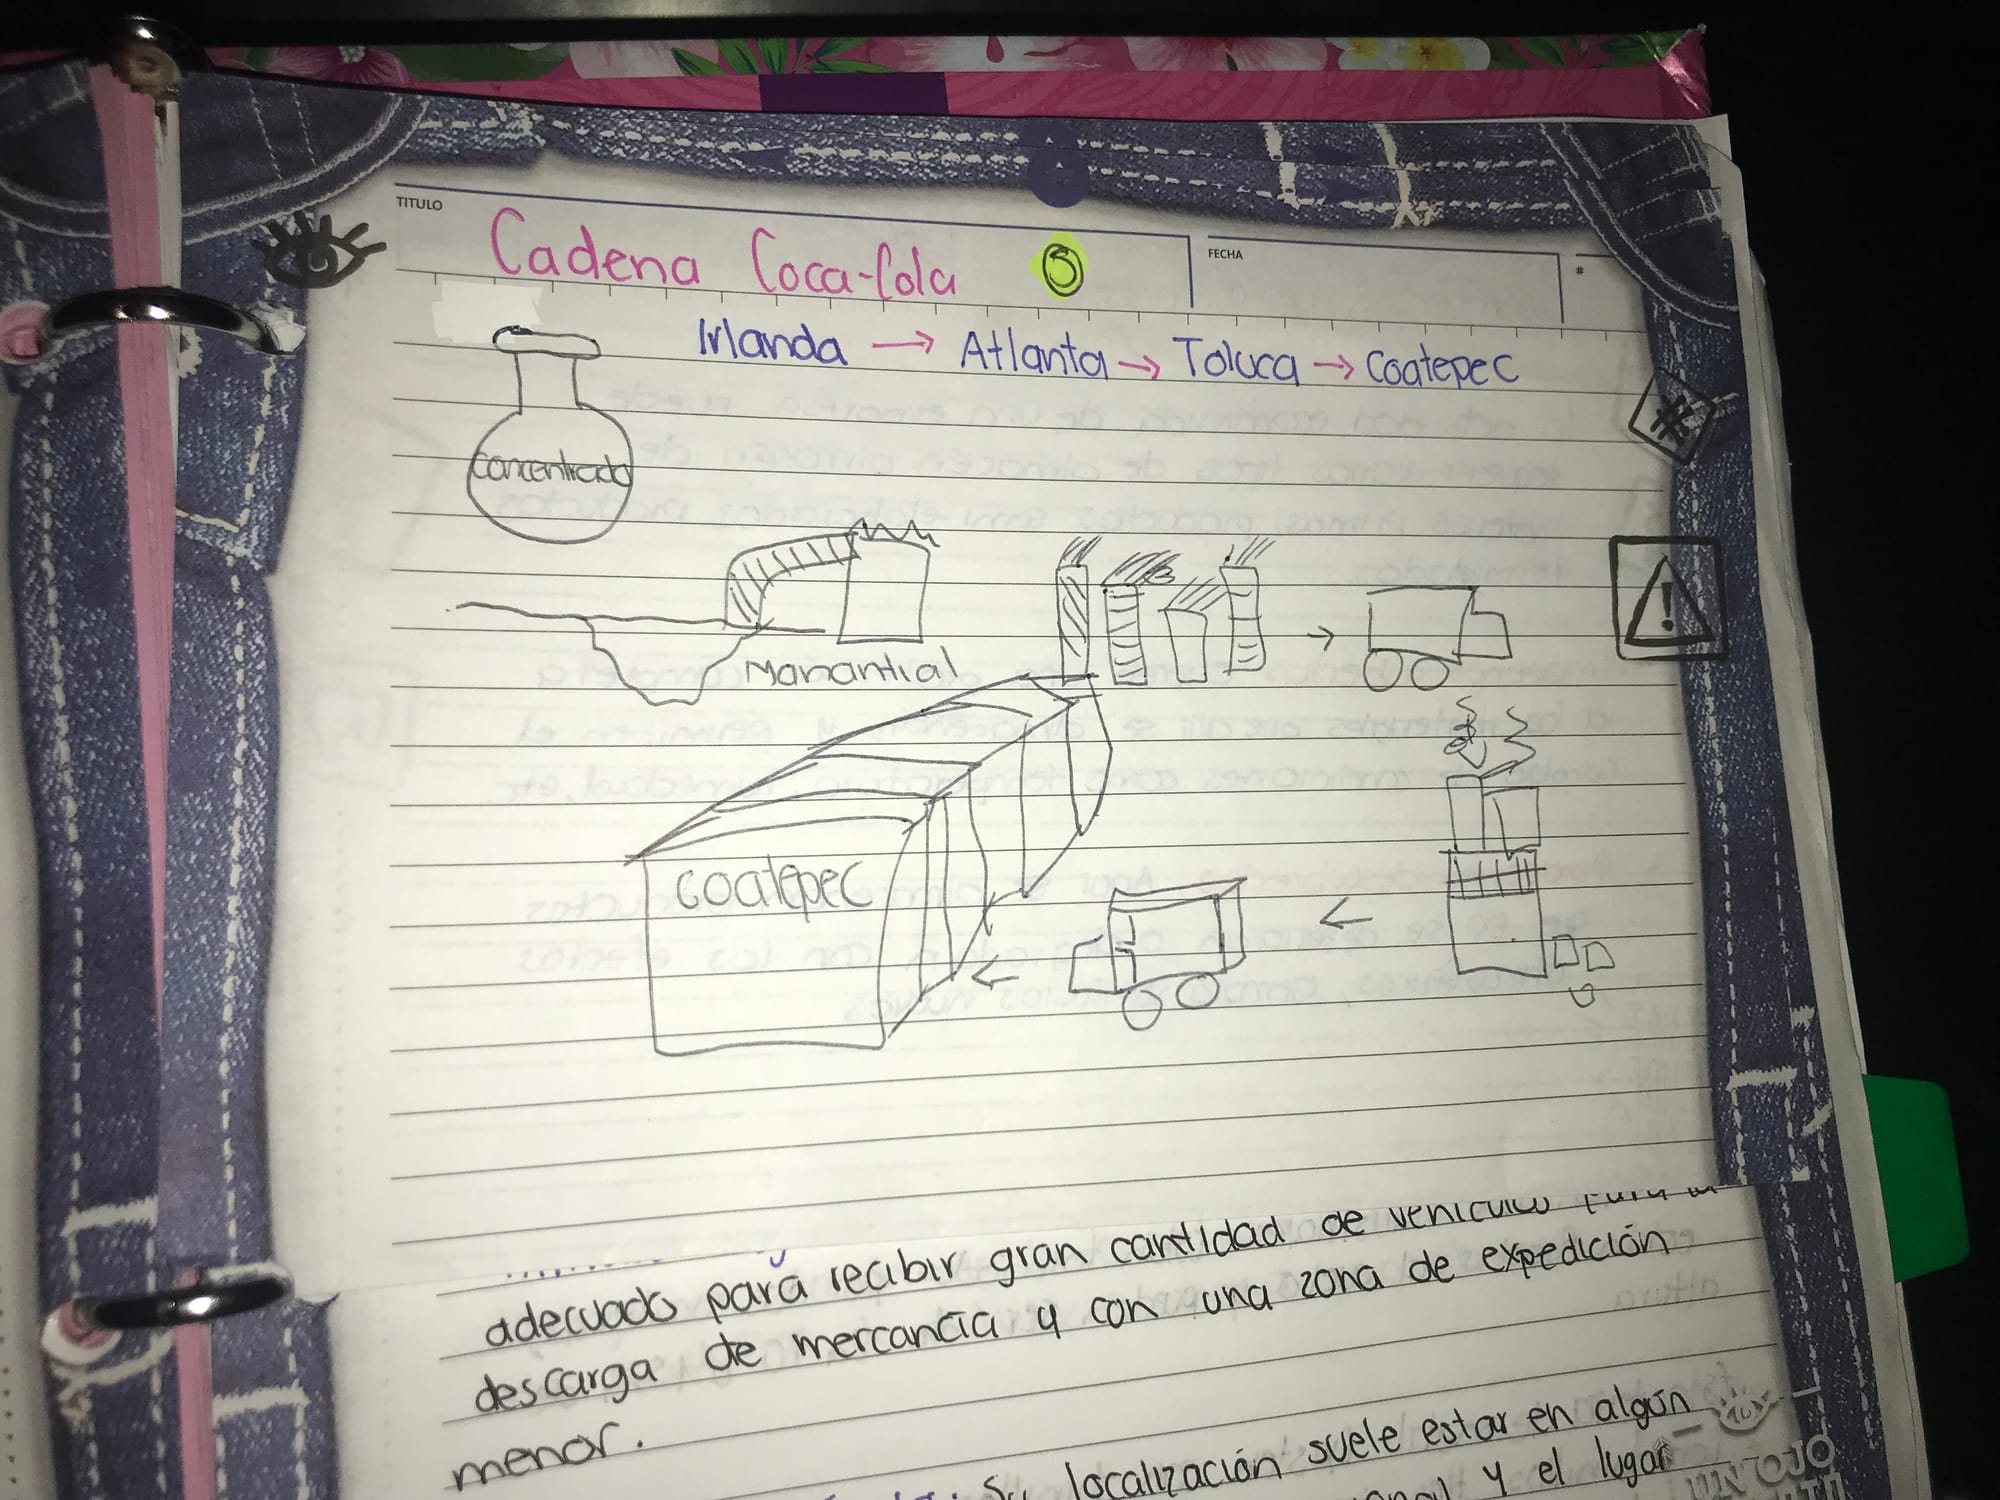 TITULO
Cadena Coca-Cola 5
FECHA
#
Irlanda → Atlanta → Toluca → Coatepec
concentrado
Manantial
coatepec
de vehiculos para
adecuado para recibir gran cantidad
descarga de mercancía y con una zona de expedición
menor.
Su localización suele estar en algún
y el lugar
UN OJO